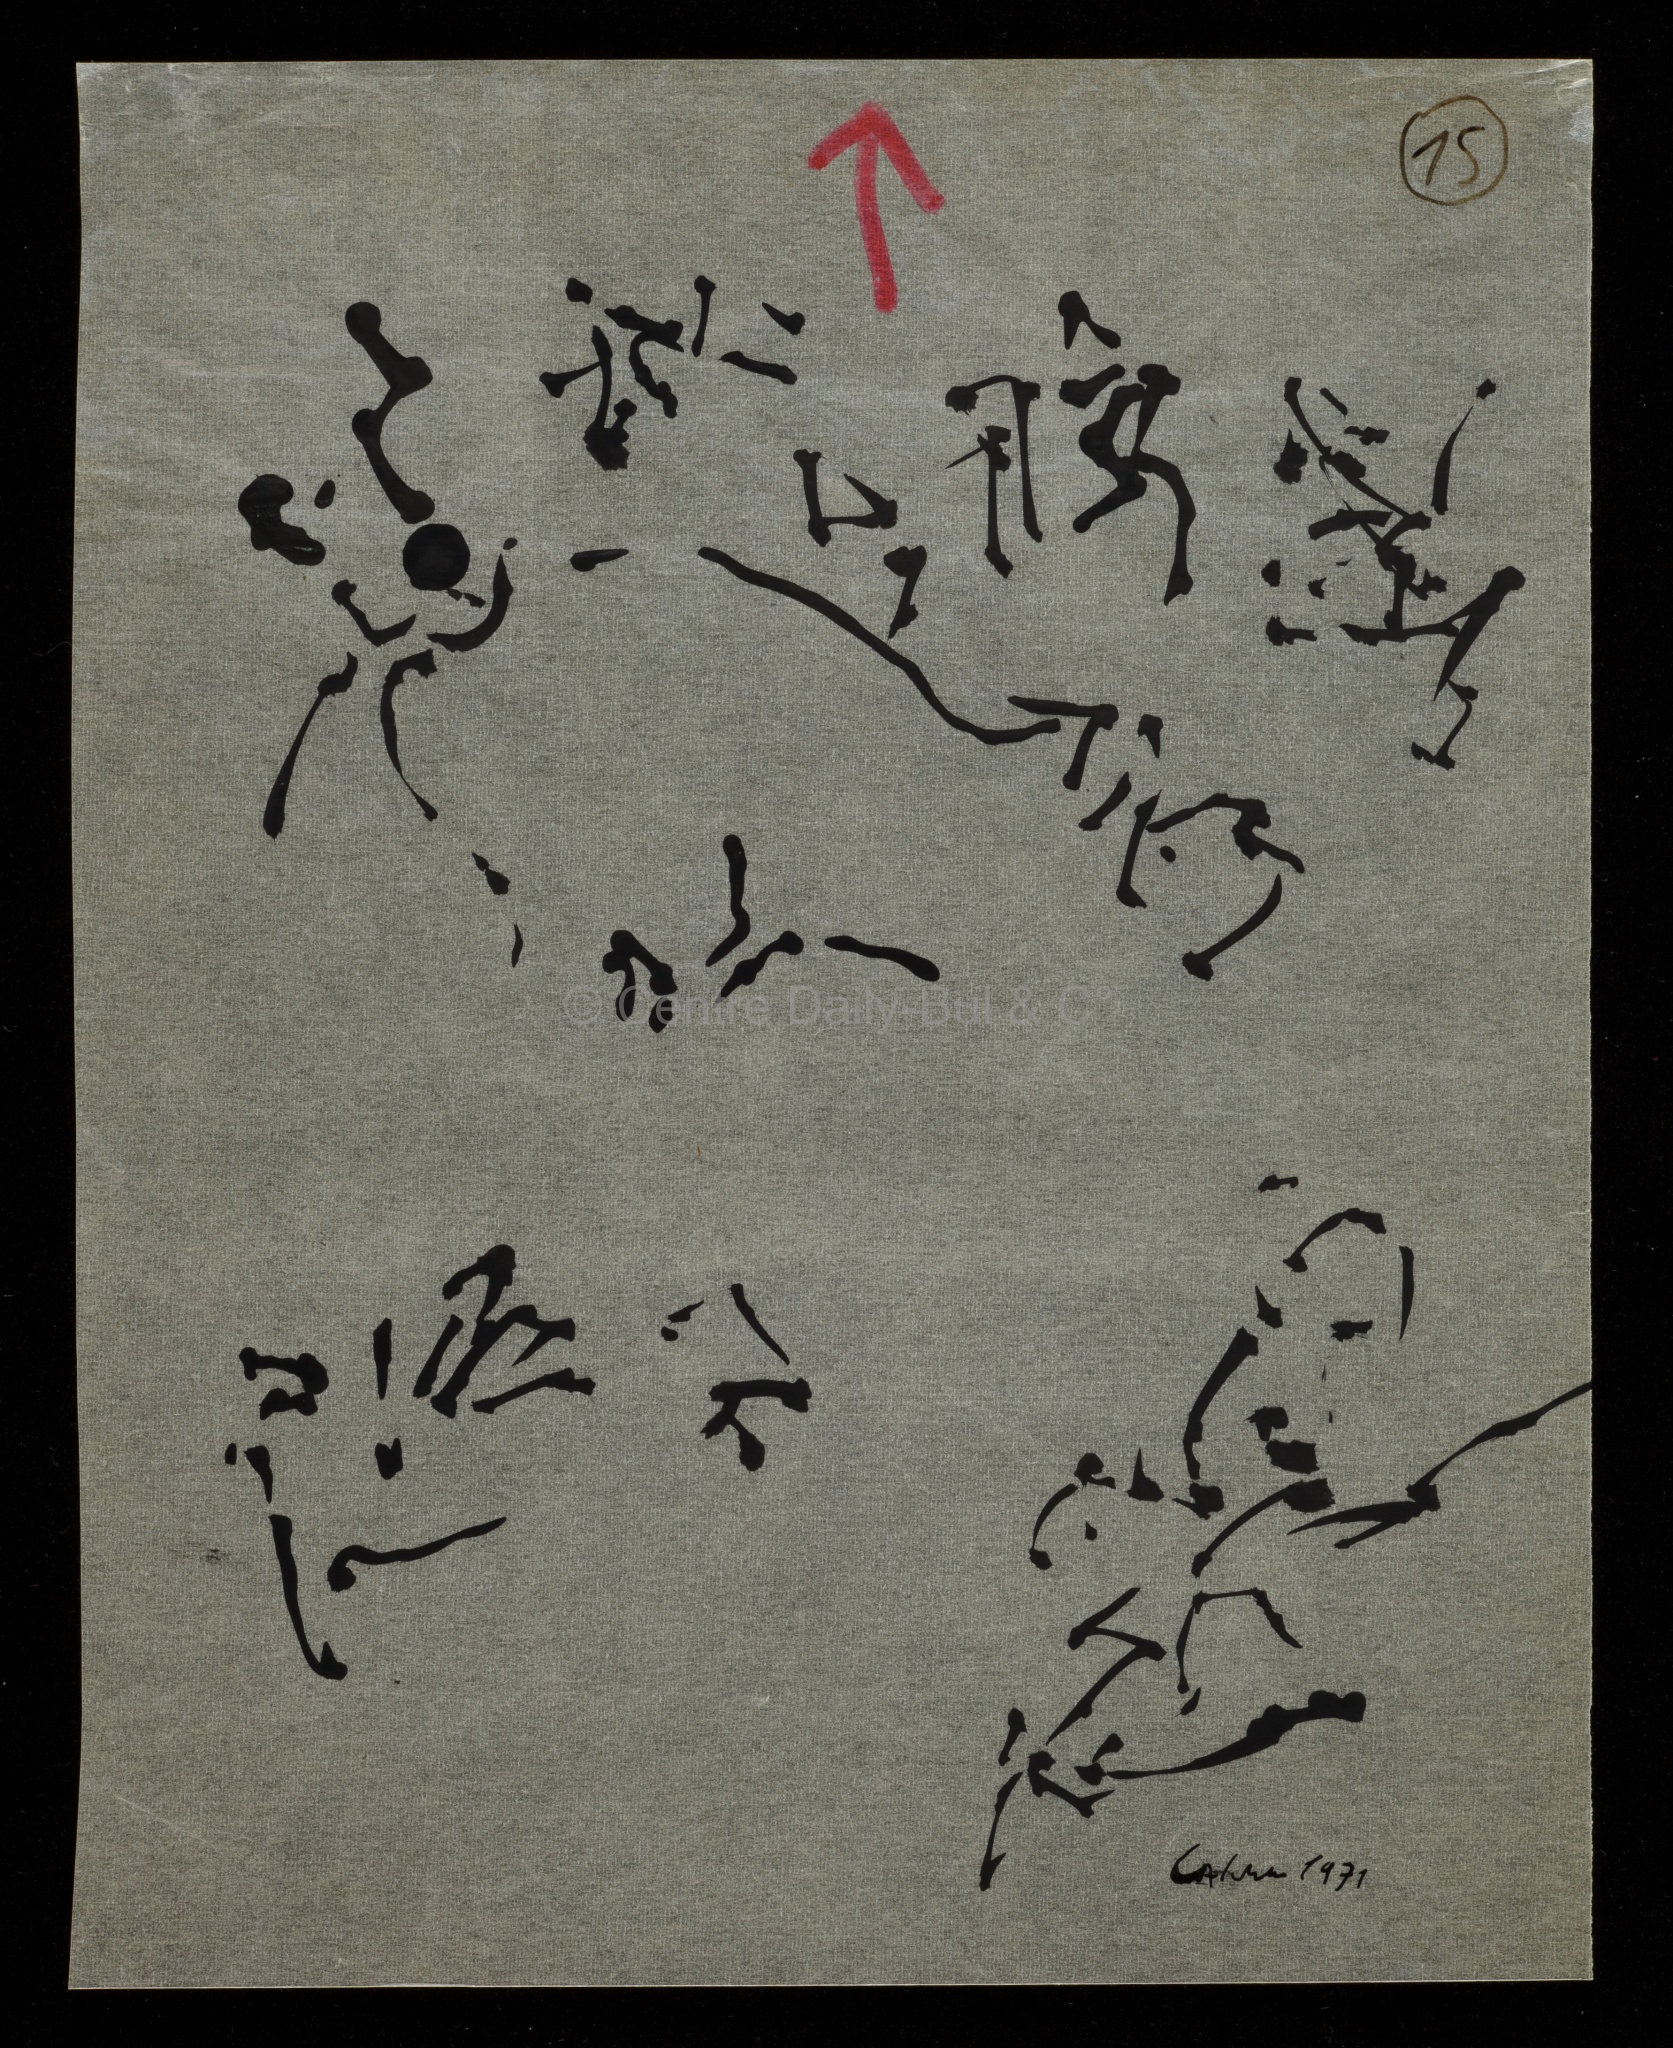 15
© Centre Daily-Bul & C°
1971